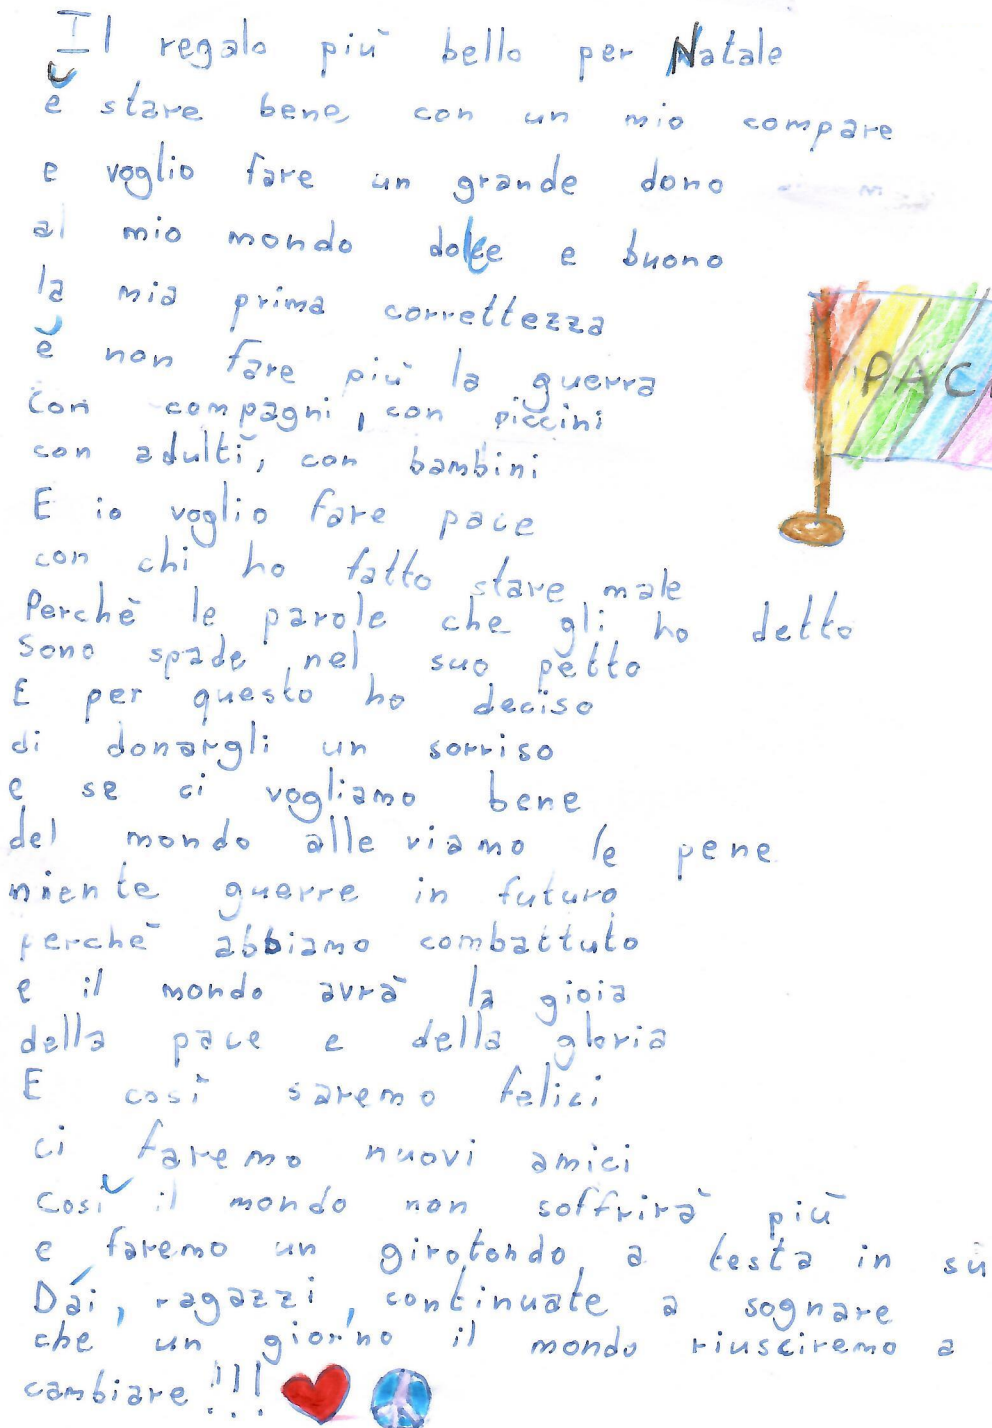 Il regalo più bello per Natale
è stare bene con un mio compare
e voglio fare un grande dono
al mio mondo dolce e buono
la mia prima correttezza
è non fare più la guerra
Con compagni, con piccini
con adulti, con bambini
E io voglio fare pace
con chi ho fatto stare male
Perchè le parole che gli ho detto
Sono spade nel suo petto
E per questo ho deciso
di donargli un sorriso
e se ci vogliamo bene
del mondo alleviamo le pene
niente guerre in futuro
perchè abbiamo combattuto
e il mondo avrà la gioia
della pace e della gloria
E così saremo felici
ci faremo nuovi amici
Così il mondo non soffrirà più
e faremo un girotondo a testa in sù
Dái, ragazzi, continuate a sognare
che un giorno il mondo riusciremo a
cambiare!!!
PAC